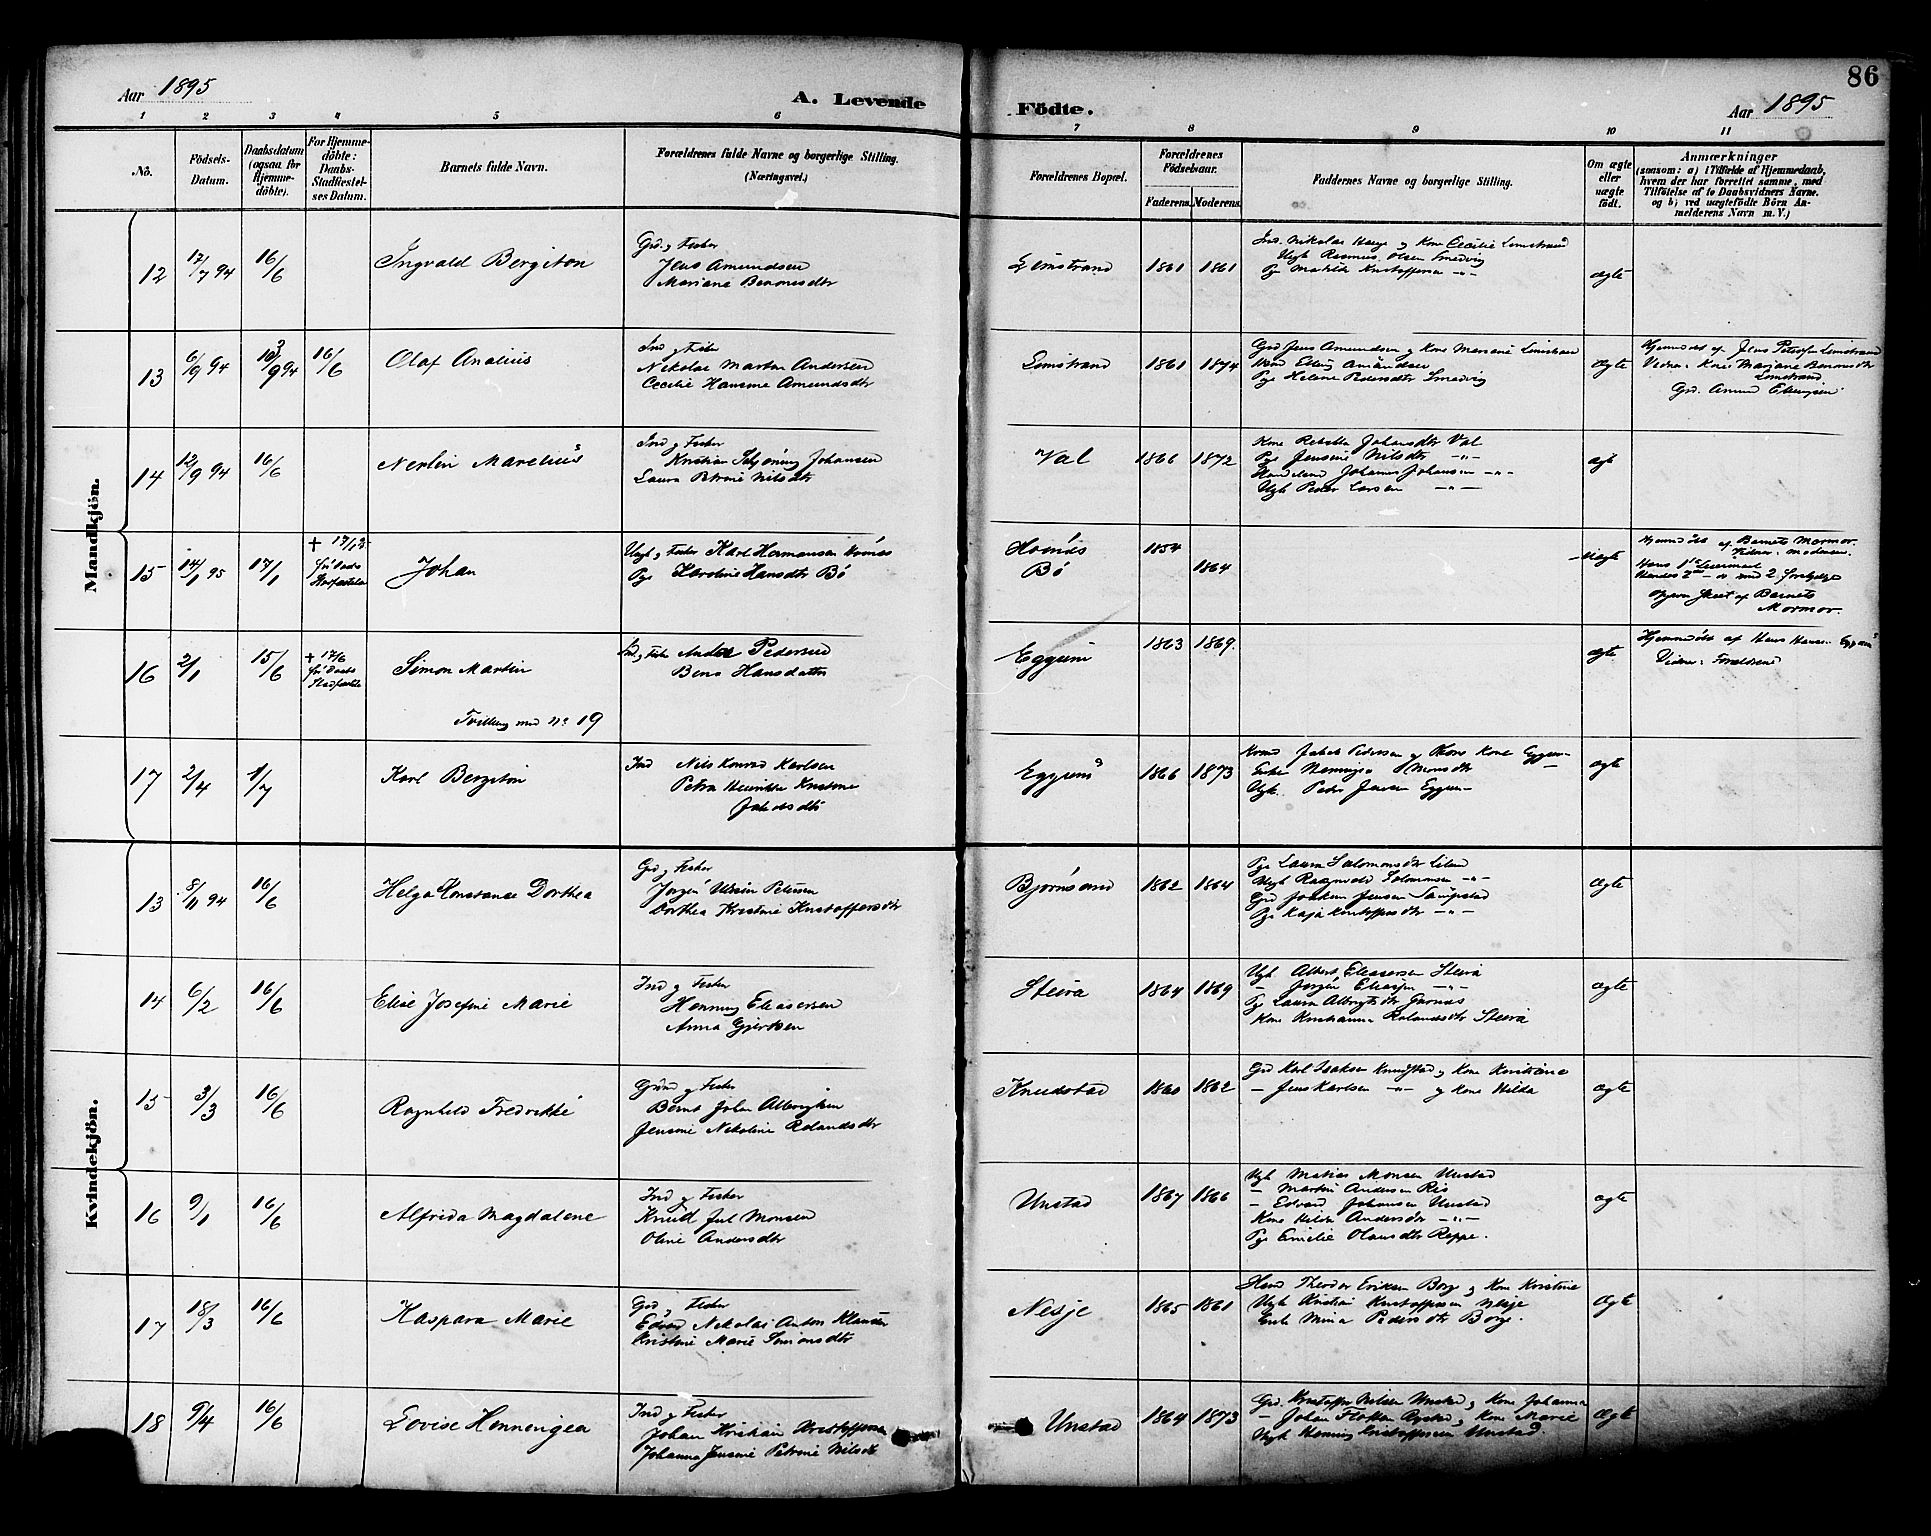 Aar 1895
A. Levende
Födte.
Aar 1895
86
1 2 3 4 5 6 7 8 9 10 11
No.
Födsels-
Datum.
Daabsdatum
(ogsaa for
Hjemme-
döbte).
For Hjemme-
döbte:
Daabs-
Stadfæstel-
ses Datum.
Barnets fulde Navn.
Forældrenes fulde Navne og borgerlige Stilling.
(Næringsvei.)
Forældrenes Bopæl.
Forældrenes
Födselsaar.
Faderens. Moderens.
Faddernes Navne og borgerlige Stilling.
Om ægte
eller
uægte
födt.
Anmærkninger
(saasom: a) i Tilfælde af Hjemmedaab,
hvem der har forrettet samme, med
Tilföielse af to Daabsvidners Navne.
og b) ved uægtefödte Börn An-
melderens Navn m. V.)
Mandkjön.
12 12/7 94 16/6 Ingvald Bergiton
Grd. og Fisker
Jens Amundsen
Mariane Benonisdtr
Limstrand 1861 1861
Ind. Nikolas Hauge og Kone Cecilie Limstrand
Ungk Rasmus Olsen Smedvig
Pge Matilde Kristoffersen -"-
ægte
13 6/9 94 10/9 94 16/6 Olaf Analius
Ind og Fisker
Nikolai Martin Andersen
Cecilie Hansine Amundsdtr
Limstrand 1861 1874
Grd Jens Amundsen og Kone Mariane Limstrand
Pge Helene Pedersdtr Smedvig
ægte
Hjemmedöbt af Jens Petersen Limstrand
Vidner: Kone Mariane Benonisdtr
Limstrand
Grd. Amund Ellingsen
14 12/9 94 16/6 Nerlin Marelius
Ind og Fisker
Kristian Schjöning Johansen
Laura Petrine Nilsdtr
Val 1866 1872
Kone Rebekka Johansdtr Val
Pge Jensine Nilsdtr -"-
Johannes Johansen -"-
Ungk Peder Larsen -"-
ægt
15 14/1 95 17/1 + 17/1 95
för Daabs
Stadfæstelse
Johan
Ungk og Fisker Karl Hermansen
Pge Karoline Hansdtr Bö
Bö
1854
1864
uægte
Hjemmedöbt af Barnets Mormor.
Vidner: Moderen.
Hans 1ste Leiermaal
Hendes 2det
af Barnets
Mormor.
16 2/1 15/6 + 17/6
för Daabs
Stadfæstelse
Simon Martin
Tvilling med No 19
Ind. og Fisker Andor Pedersen
Bena Hansdatter
Eggum 1863 1869.
ægte
Hjemmedöbt af Hans Hansen Eggum
Vidner: Forældrene
17 2/4 1/7 Karl Bergiton
Ind Nils Konrad Karlsen
Petra Henrikke Kristine
Jakobsdtr
Eggum 1866 1873
Jakob Pedersen og Kone Eggum
Enke Nemmingsa Monsdtr -
Ungk. Peder Jensen Eggum
ægte
Kvindekjön.
13 8/11 94 16/6 Helga Konstanse Dorthea
Grd og Fisker
Jörgen Ulrein Petersen
Dorthea Kristine Kristoffersdtr
Bjørnsand 1862 1864
Pge Laura Salomonsdtr Liland
Ungk Ragnvald Salomonsen -"-
Grd Joakim Jensen
Pge Kaja Kristoffersdtr -"-
ægte
14 6/2 16/6 Elise Josefine Marie
Ind og Fisker
Henning Eleasersen
Anna Gjertsen
Steira 1864 1869
Ungk Albert Eleasersen Steira
- Jörgen Eliasen -"-
Pge Laura Albrigtsdtr
Kone Kristianna Rolandsdtr Steira
ægte
15 3/3 16/6 Ragnhild Fredrikke
Grd og Fisker
Bernt Johan Albrigtsen
Jensine Nikoline Rolandsdtr
Knudstad 1860 1862
Grd Karl Isaksen Knudstad og Kone Kristiane
- Jens Karlsen -"- og Kone Hilda
ægte
16 9/1 16/6 Alfrida Magdalene
Ind og Fisker
Knud Jul Monsen
Oline Andersdtr
Unstad 1867 1866
Ungk Matias Monsen Unstad
- Martin Andersen Ris
- Edvard Johansen Unstad
Kone Hilda Andersdtr -"-
Pge Emilie Olausdtr Reppe.
ægte
17 18/3 16/6 Kaspara Marie
Grd og Fisker
Edvard Nikolai Anton Klausen
Kristine Marie Simonsdtr
Nesje 1865 1861
Theodor Eriksen Borg og Kone Kristine
Ungk Kristian Kristoffersen Nesje
Enke Mina Pedersdtr Borge.
ægte
18 9/4 16/6 Lovise Henningea
Ind og Fisker
Johan Kristian Kristoffersen
Johanna Jensine Petrine Nilsdtr
Unstad 1864 1873
Grd. Kristoffer Nilsen Unstad og Kone Johanna
- Johan og Kone Marie
Ungk Henning Kristoffersen Unstad.
ægte